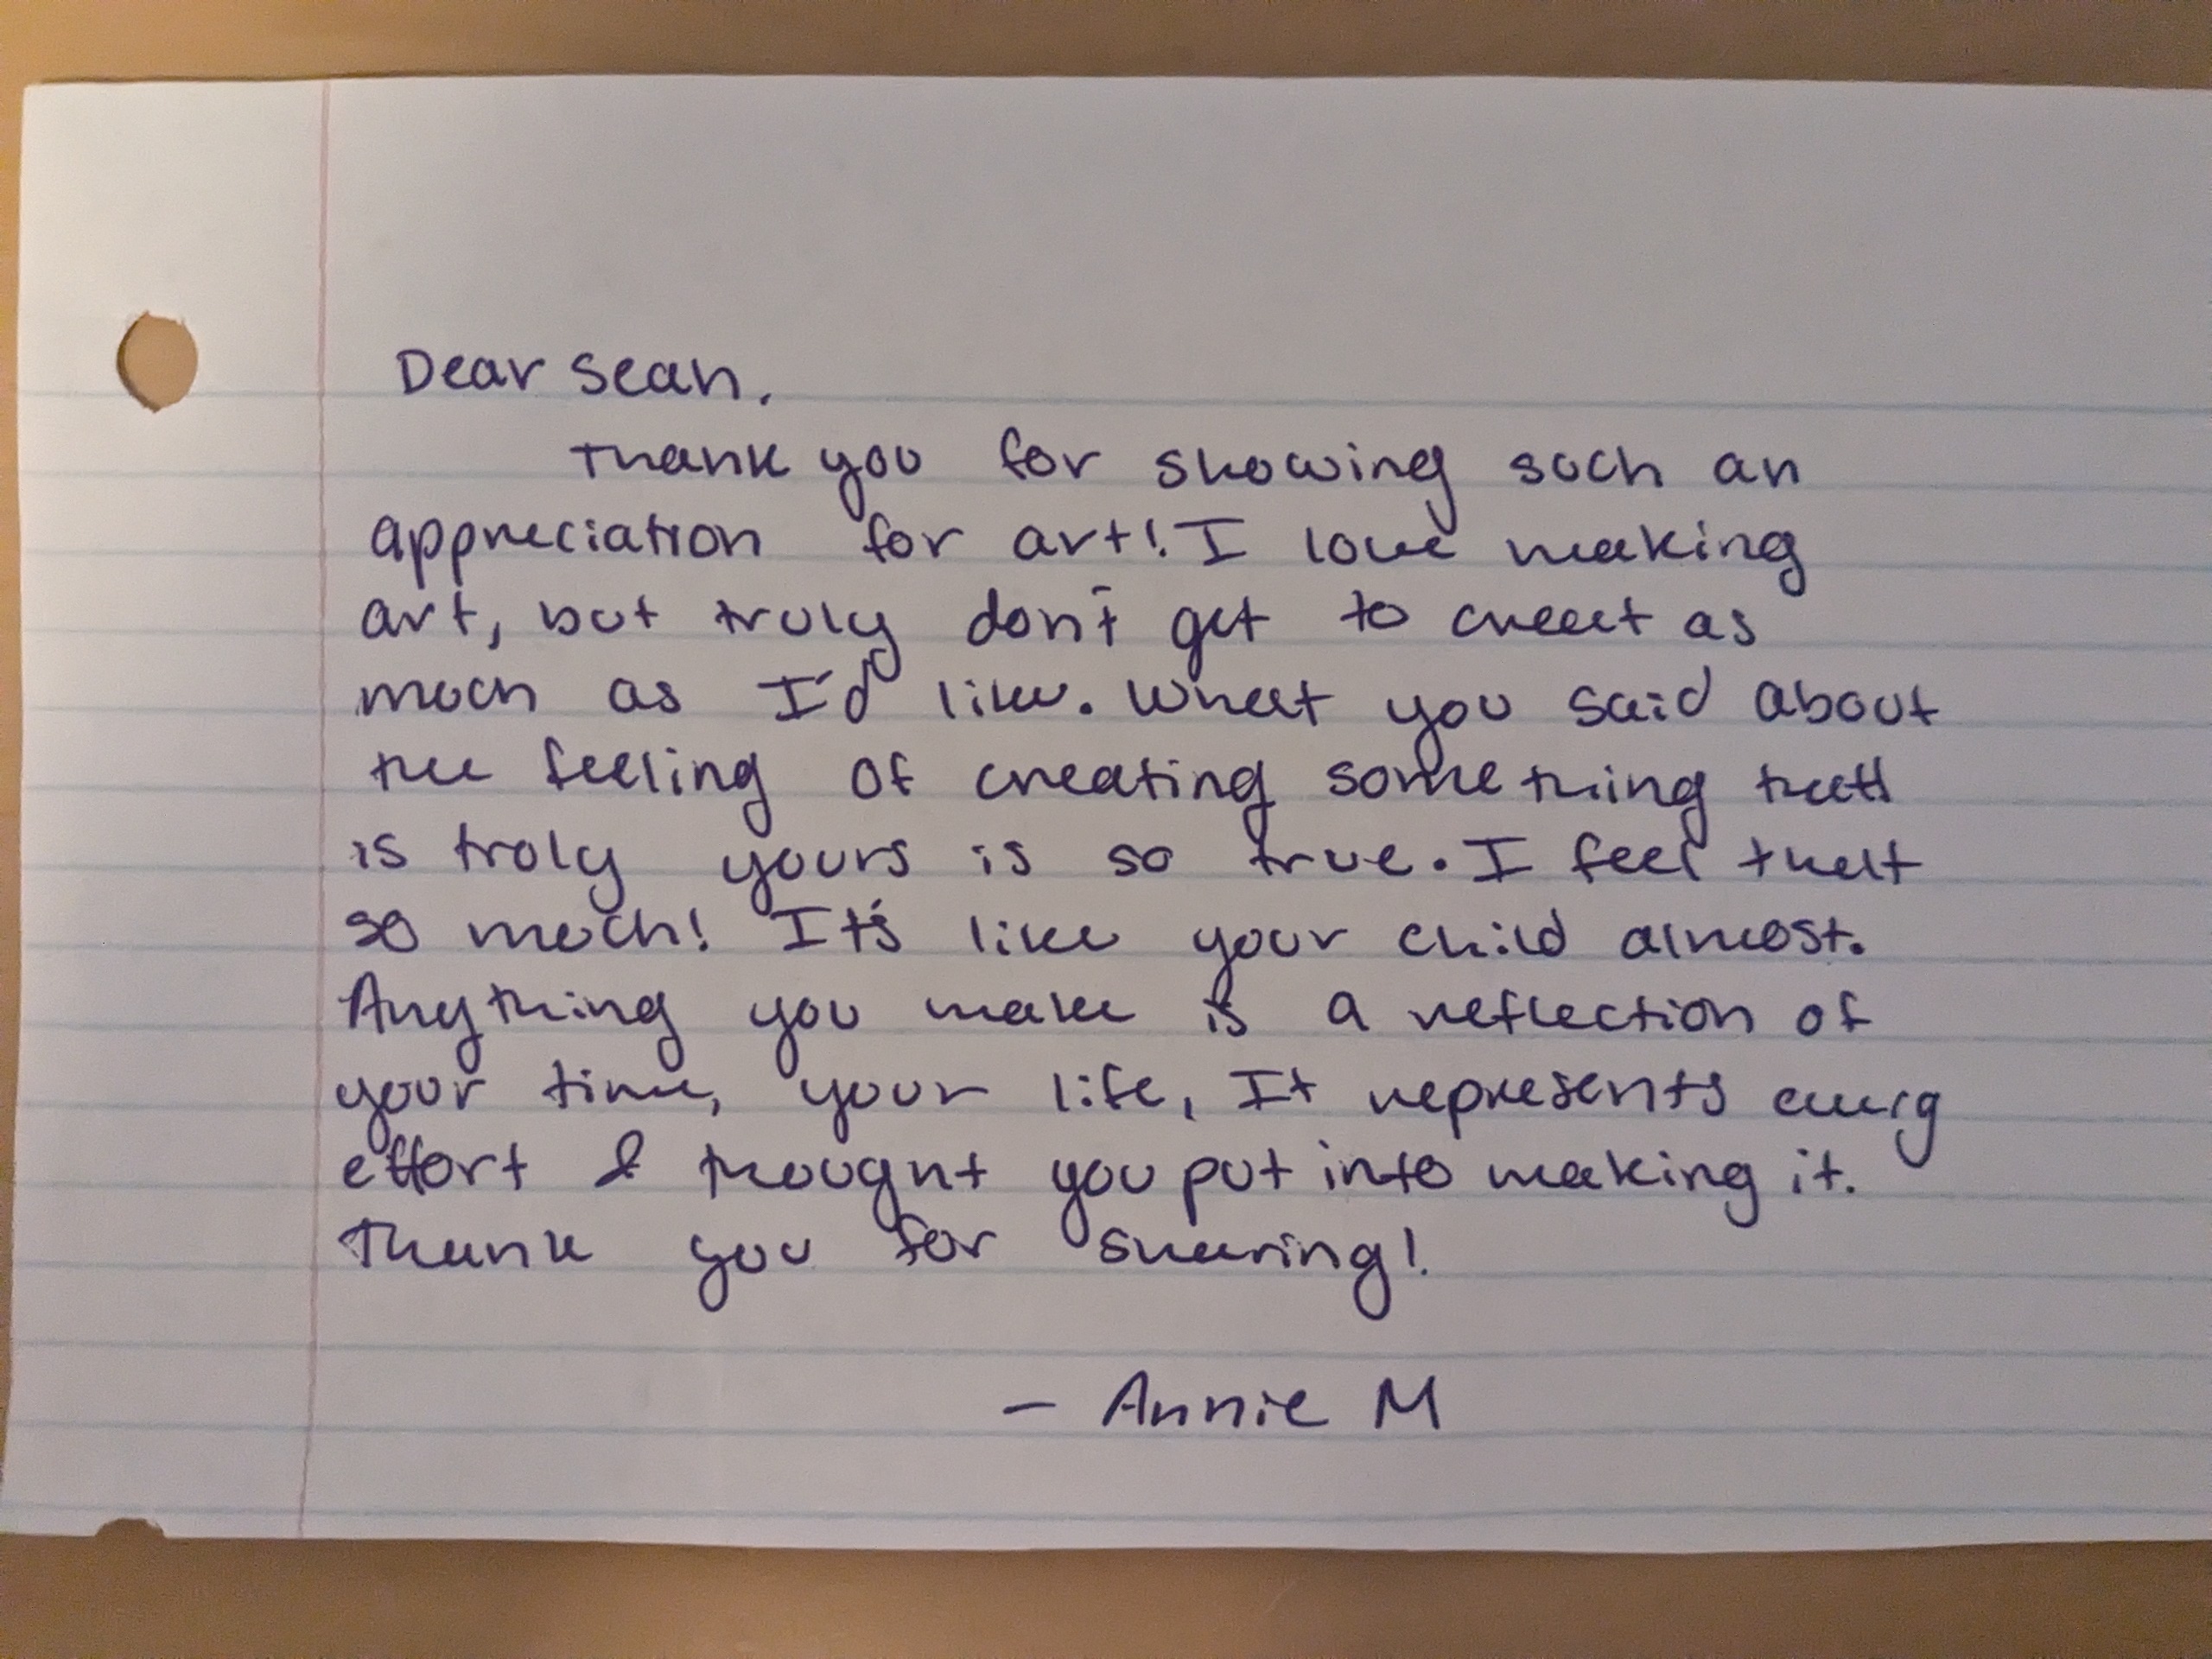 Dear Sean,
Thank you for showing such an
appreciation for art! I love making
art, but truly don't get to creat as
much as I'd like. What you said about
the feeling of creating something that
is truly yours is so true. I feel that
so much! It's like your child almost.
Anything you make is a reflection of
your time, your life, It represents every
effort & thought you put into making it.
Thank you for sharing!
- Annie M